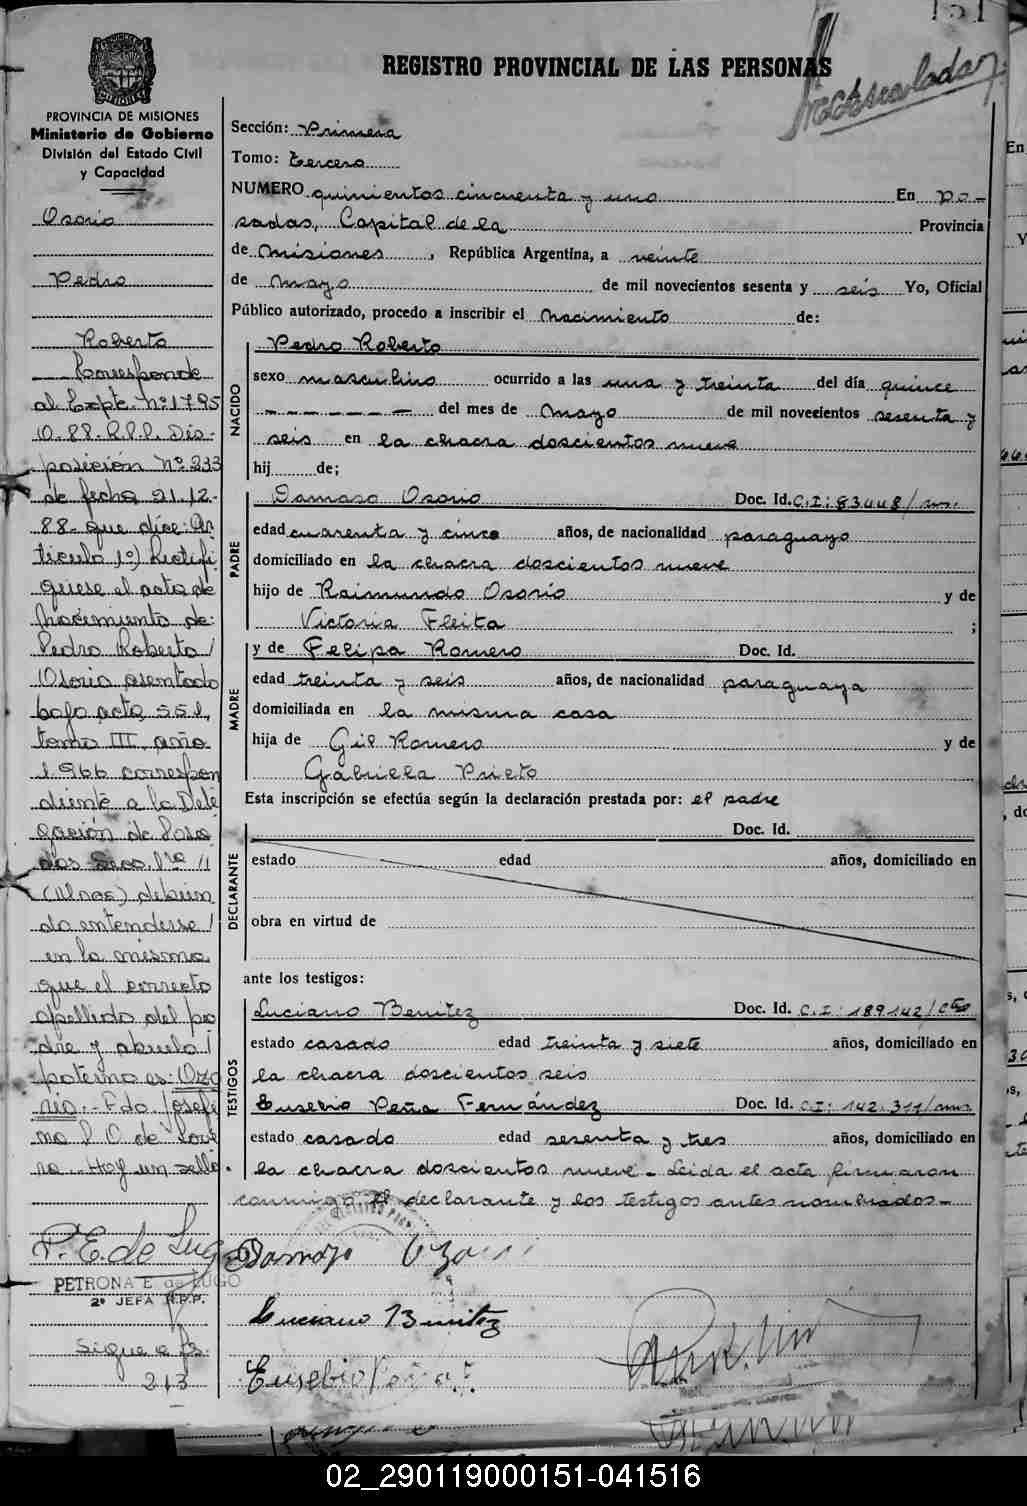 151
REGISTRO PROVINCIAL DE LAS PERSONAS
PROVINCIA DE MISIONES
Ministerio de Gobierno
División del Estado Civil
y Capacidad
Osorio
Pedro
Roberto
Corresponde
al Expte. Nº 1795
O. 88. R.P.P. Dis-
posición Nº 233
de fecha 21.12.
88. que dice: Ar
tículo 1º) Rectifi
quese el acta de
Nacimiento de:
Pedro Roberto/
Osorio asentado
bajo acta 551,
tomo III, año
1966 correspon
diente a la Dele
gación de Posa
das Secc. 1ra //
debien
do entenderse/
en la misma
que el correcto
apellido del pa
dre y abuelo/
paterno es: Ozo
rio.- Fdo. Josefi
na P. O. de
Hay un sello.
P. E. de Lugo
PETRONA E. de LUGO
2º JEFA R.P.P.
Sigue a fs.
213
Sección: Primera
Tomo: tercero
NUMERO quinientos cincuenta y uno En Po-
sadas, Capital de la Provincia
de Misiones, República Argentina, a veinte
de Mayo de mil novecientos sesenta y seis Yo, Oficial
Público autorizado, procedo a inscribir el Nacimiento de:
NACIDO
Pedro Roberto
sexo masculino ocurrido a las una y treinta del día quince
------ del mes de Mayo de mil novecientos sesenta y
seis en la chacra doscientos nueve
hij de;
PADRE
Damaso Osorio Doc. Id. C.I: 83448/mns.
edad cuarenta y cinco años, de nacionalidad paraguayo
domiciliado en la chacra doscientos nueve
hijo de Raimundo Osorio y de
Victoria Fleita ;
MADRE
y de Felipa Romero Doc. Id.
edad treinta y seis años, de nacionalidad paraguaya
domiciliada en la misma casa
hija de Gil Romero y de
Gabriela Prieto
Esta inscripción se efectúa según la declaración prestada por: el padre
DECLARANTE
Doc. Id.
estado edad años, domiciliado en
obra en virtud de
ante los testigos:
TESTIGOS
Luciano Benitez Doc. Id. C.I: 189142/
estado casado edad treinta y siete años, domiciliado en
la chacra doscientos seis
Eusebio Peña Fernández Doc. Id. C.I: 142.311/mns
estado casado edad sesenta y tres años, domiciliado en
la chacra doscientos nueve - Leida el acta firmaron
conmigo, el declarante y los testigos antes nombrados-
Damazo Ozorio
Luciano Benitez
Eusebio Peña F.
02_290119000151-041516